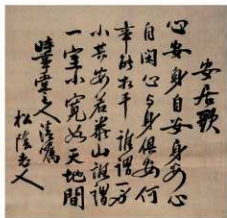 安居歌
心安身自安身安心
自閑心与身俱安何
事能相干誰謂一身
小其安若泰山誰謂
一室小寬如天地間
主人清囑
松陰老人